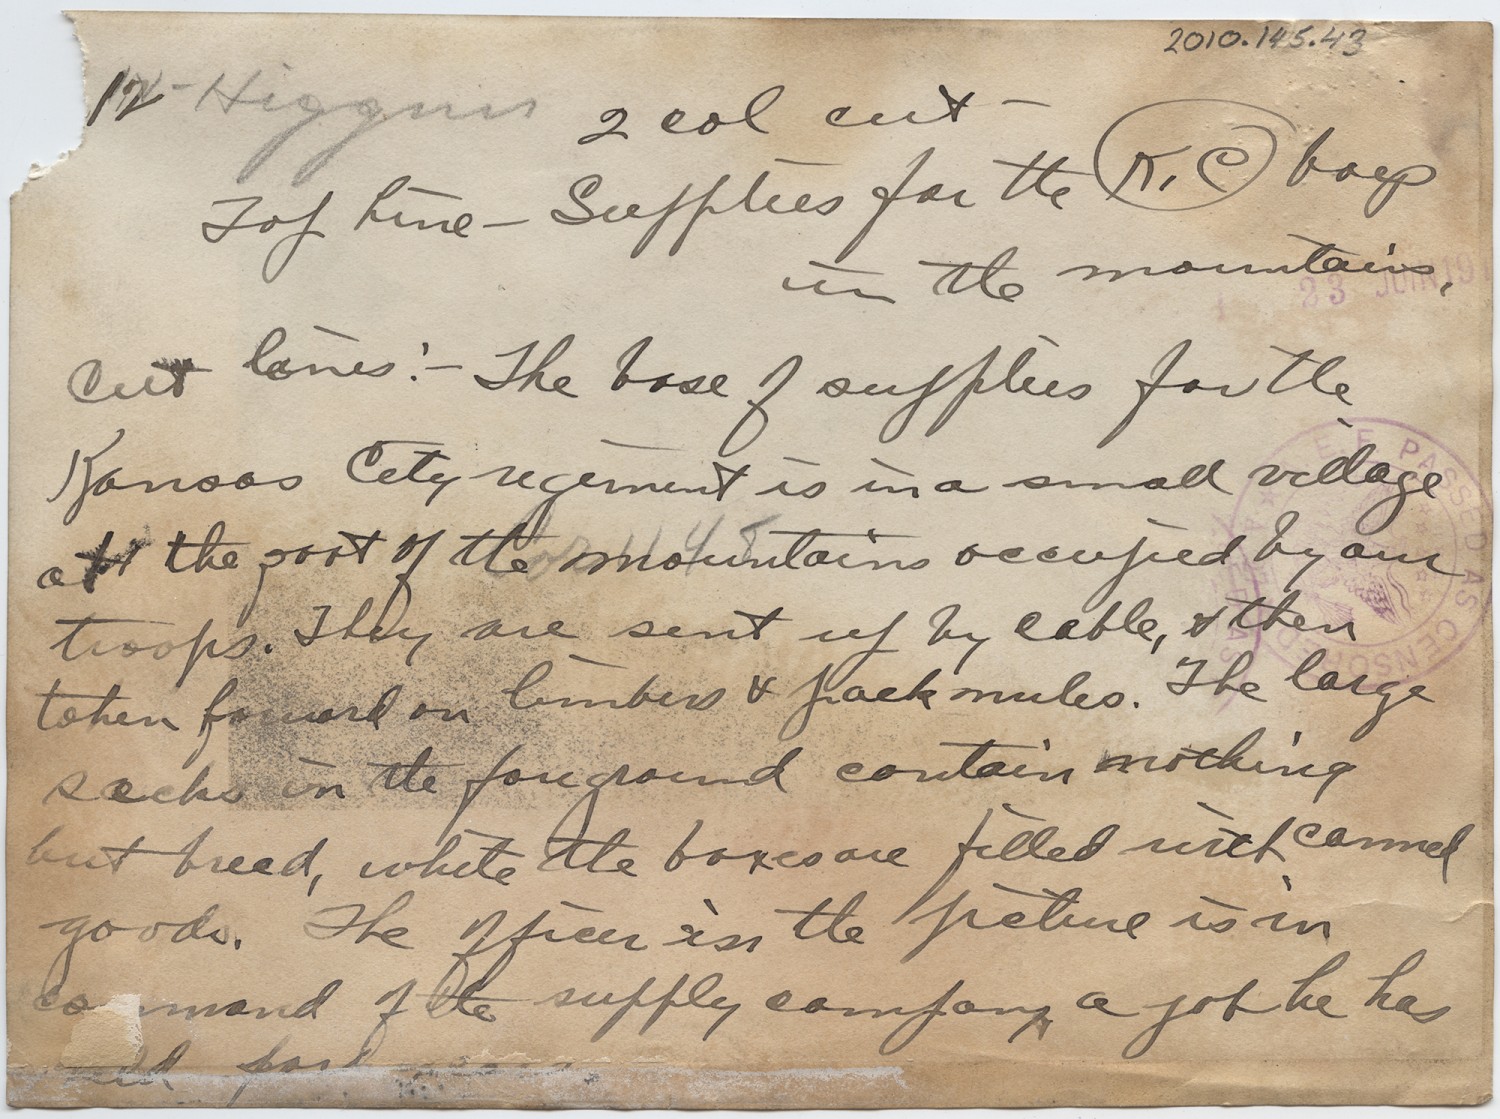 2010.145.43
12 - Higgins
2 col cut -
Top Line - Supplies for the K.C boys
in the mountains.
23 JUIN 191
Cut lines: - The base of supplies for the
Kansas City regiment is in a small village
at the foot of the mountains occupied by our
troops. They are sent up by cable, & then
taken forward on limbers & pack mules. The large
sacks in the foreground contain nothing
but bread, while the boxes are filled with canned
goods. The officer in the picture is in
command of the supply company, a job he has
held for
A.E.F. PASSED AS CENSORED